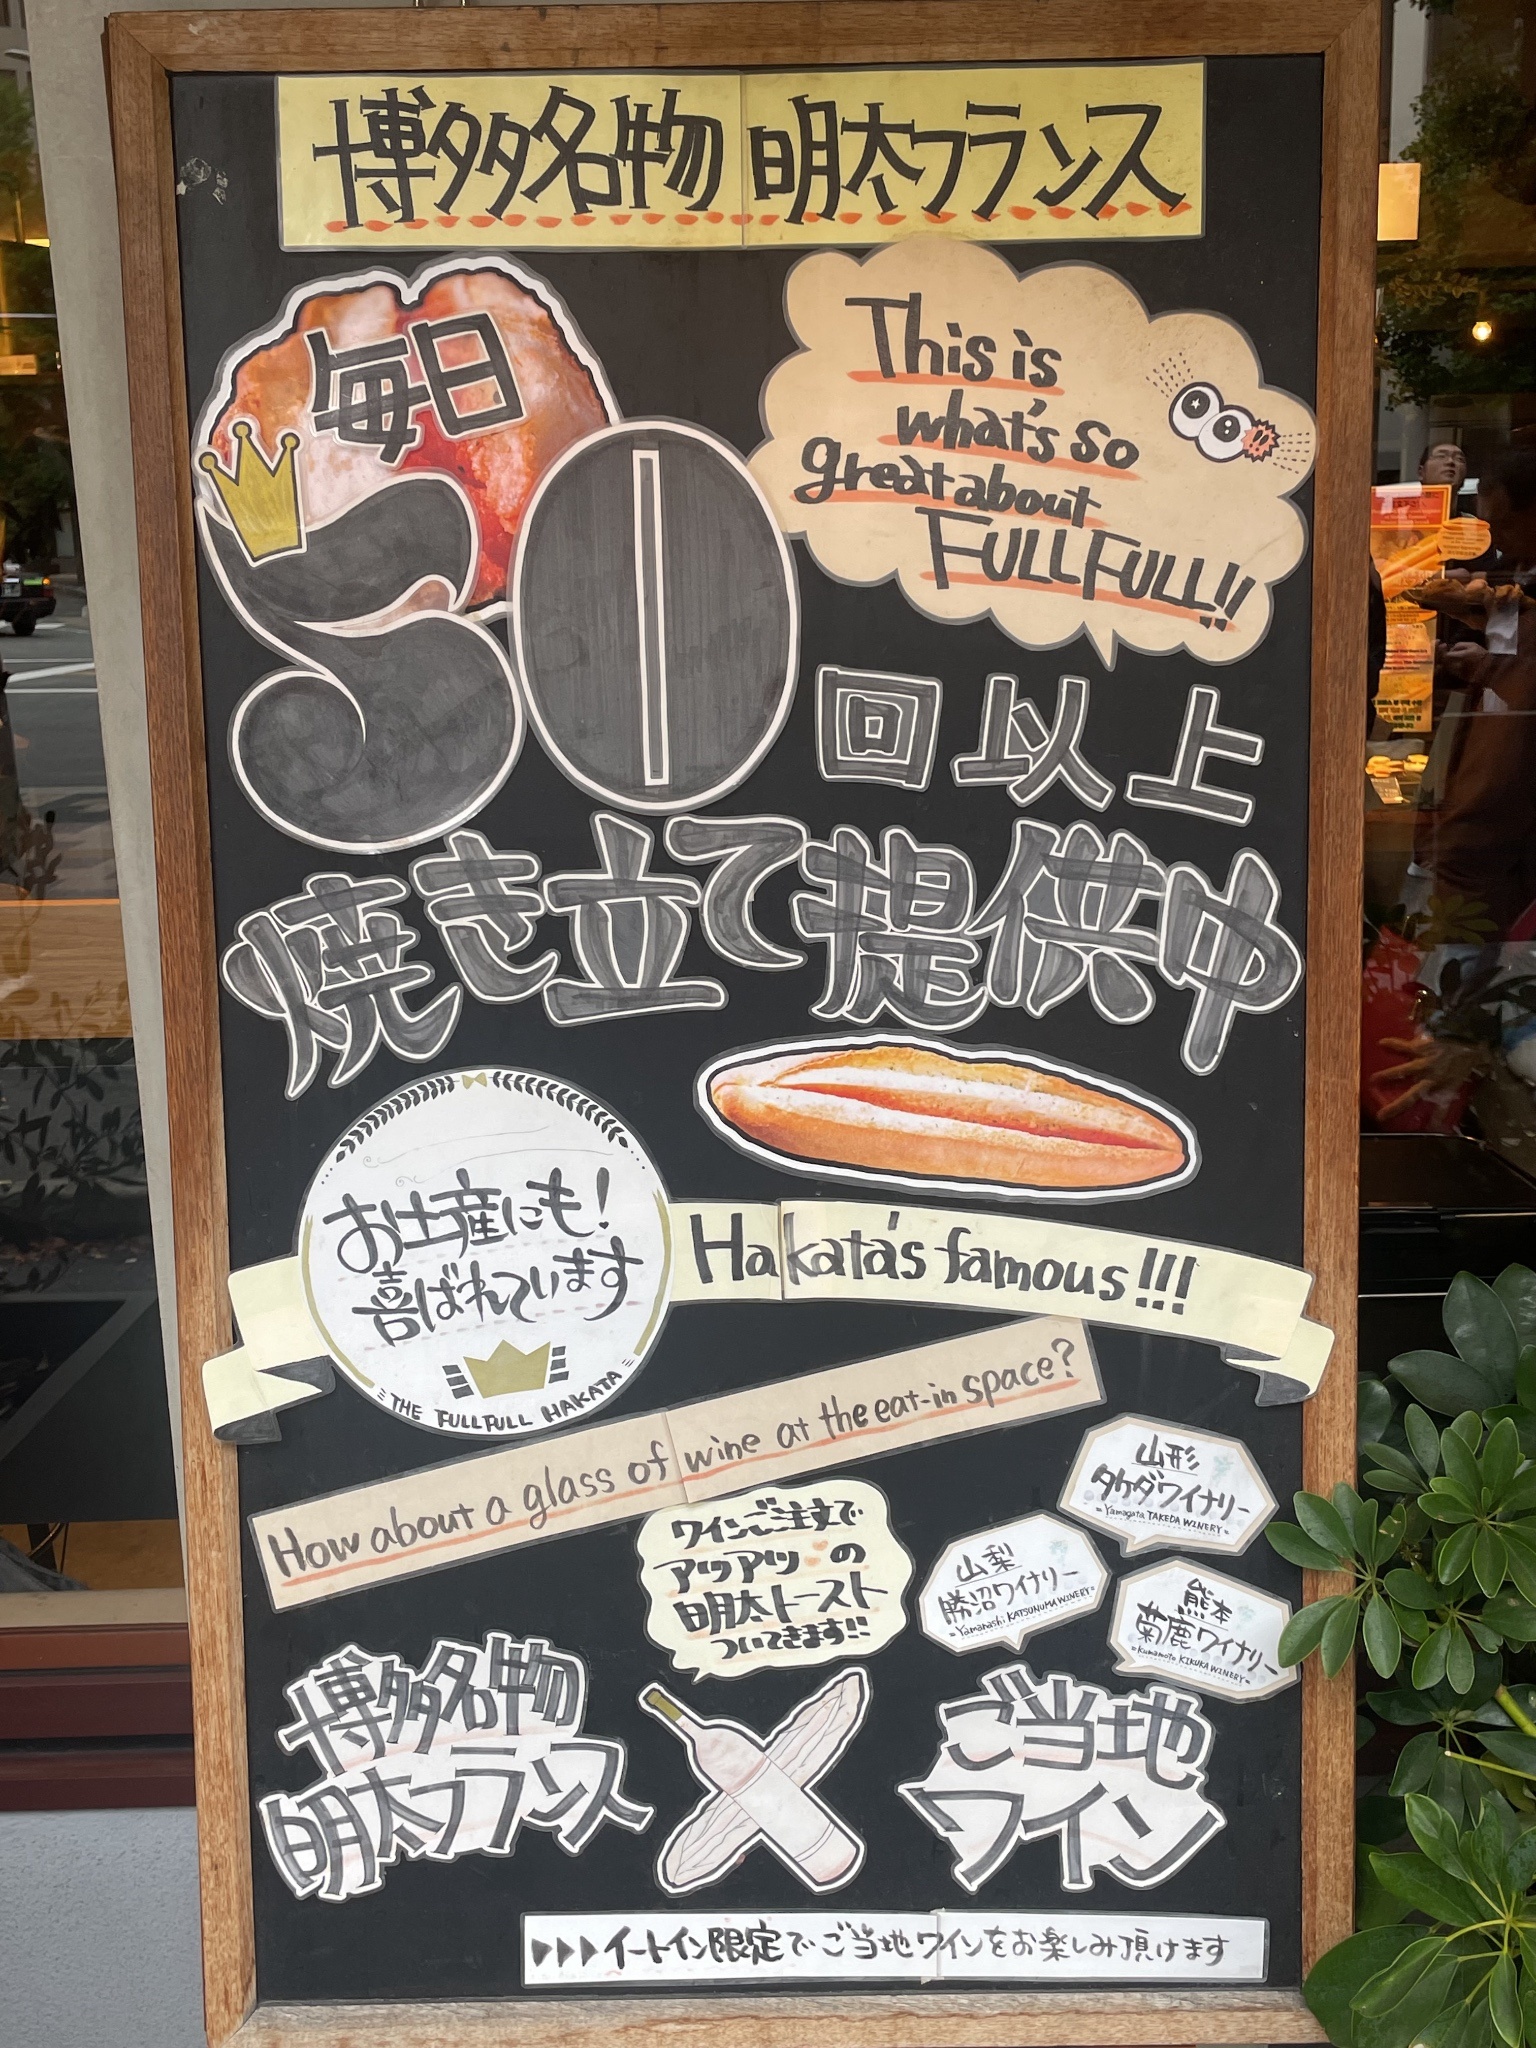 博多名物 明太フランス
毎日
50
回以上
焼き立て提供中
This is
what's so
great about
FULLFULL!!
お土産にも!
喜ばれています
THE FULLFULL HAKATA
Hakata's famous!!!
How about a glass of wine at the eat-in space?
ワインご注文で
アツアツ の
明太トースト
ついてきます!!
山形
タケダワイナリー
-Yamagata TAKEDA WINERY-
山梨
勝沼ワイナリー
-Yamanashi KATSUNUMA WINERY-
熊本
菊鹿ワイナリー
-Kumamoto KIKUKA WINERY-
博多名物
明太フランス
ご当地
ワイン
▶▶▶イートイン限定でご当地ワインをお楽しみ頂けます